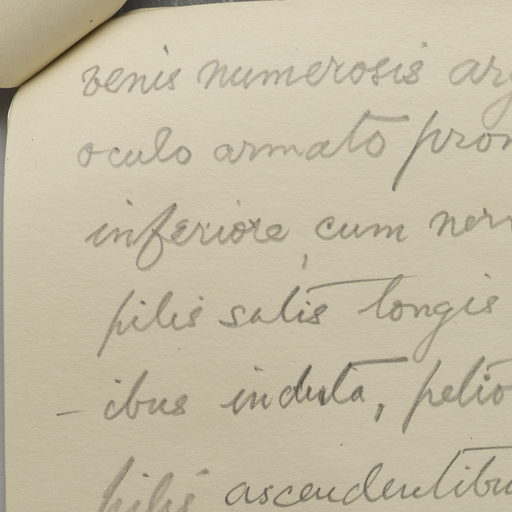 venis numerosis arg
oculo armato pron
inferiore, cum nerv
pilis satis longis
- ibus induta, petio
pilis ascendentibu